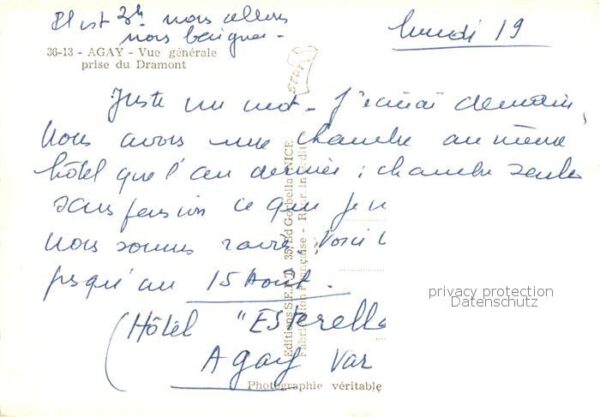 Il est 3h nous allons
nous baigner -
lundi 19
36-13 - AGAY - Vue générale
prise du Dramont
Juste un mot - J'écrirai demain,
nous avons une chambre au même
hôtel que l'an dernier ; chambre seule
sans pension ce que je
Nous sommes ravis. Voici
jusqu'au 15 Août.
(Hôtel "Esterella
Agay Var
Editions S.E.P.T. 35, Bd Gorbella NICE
Fabrication Française - Repr. Interdite
Photographie véritable
privacy protection
Datenschutz